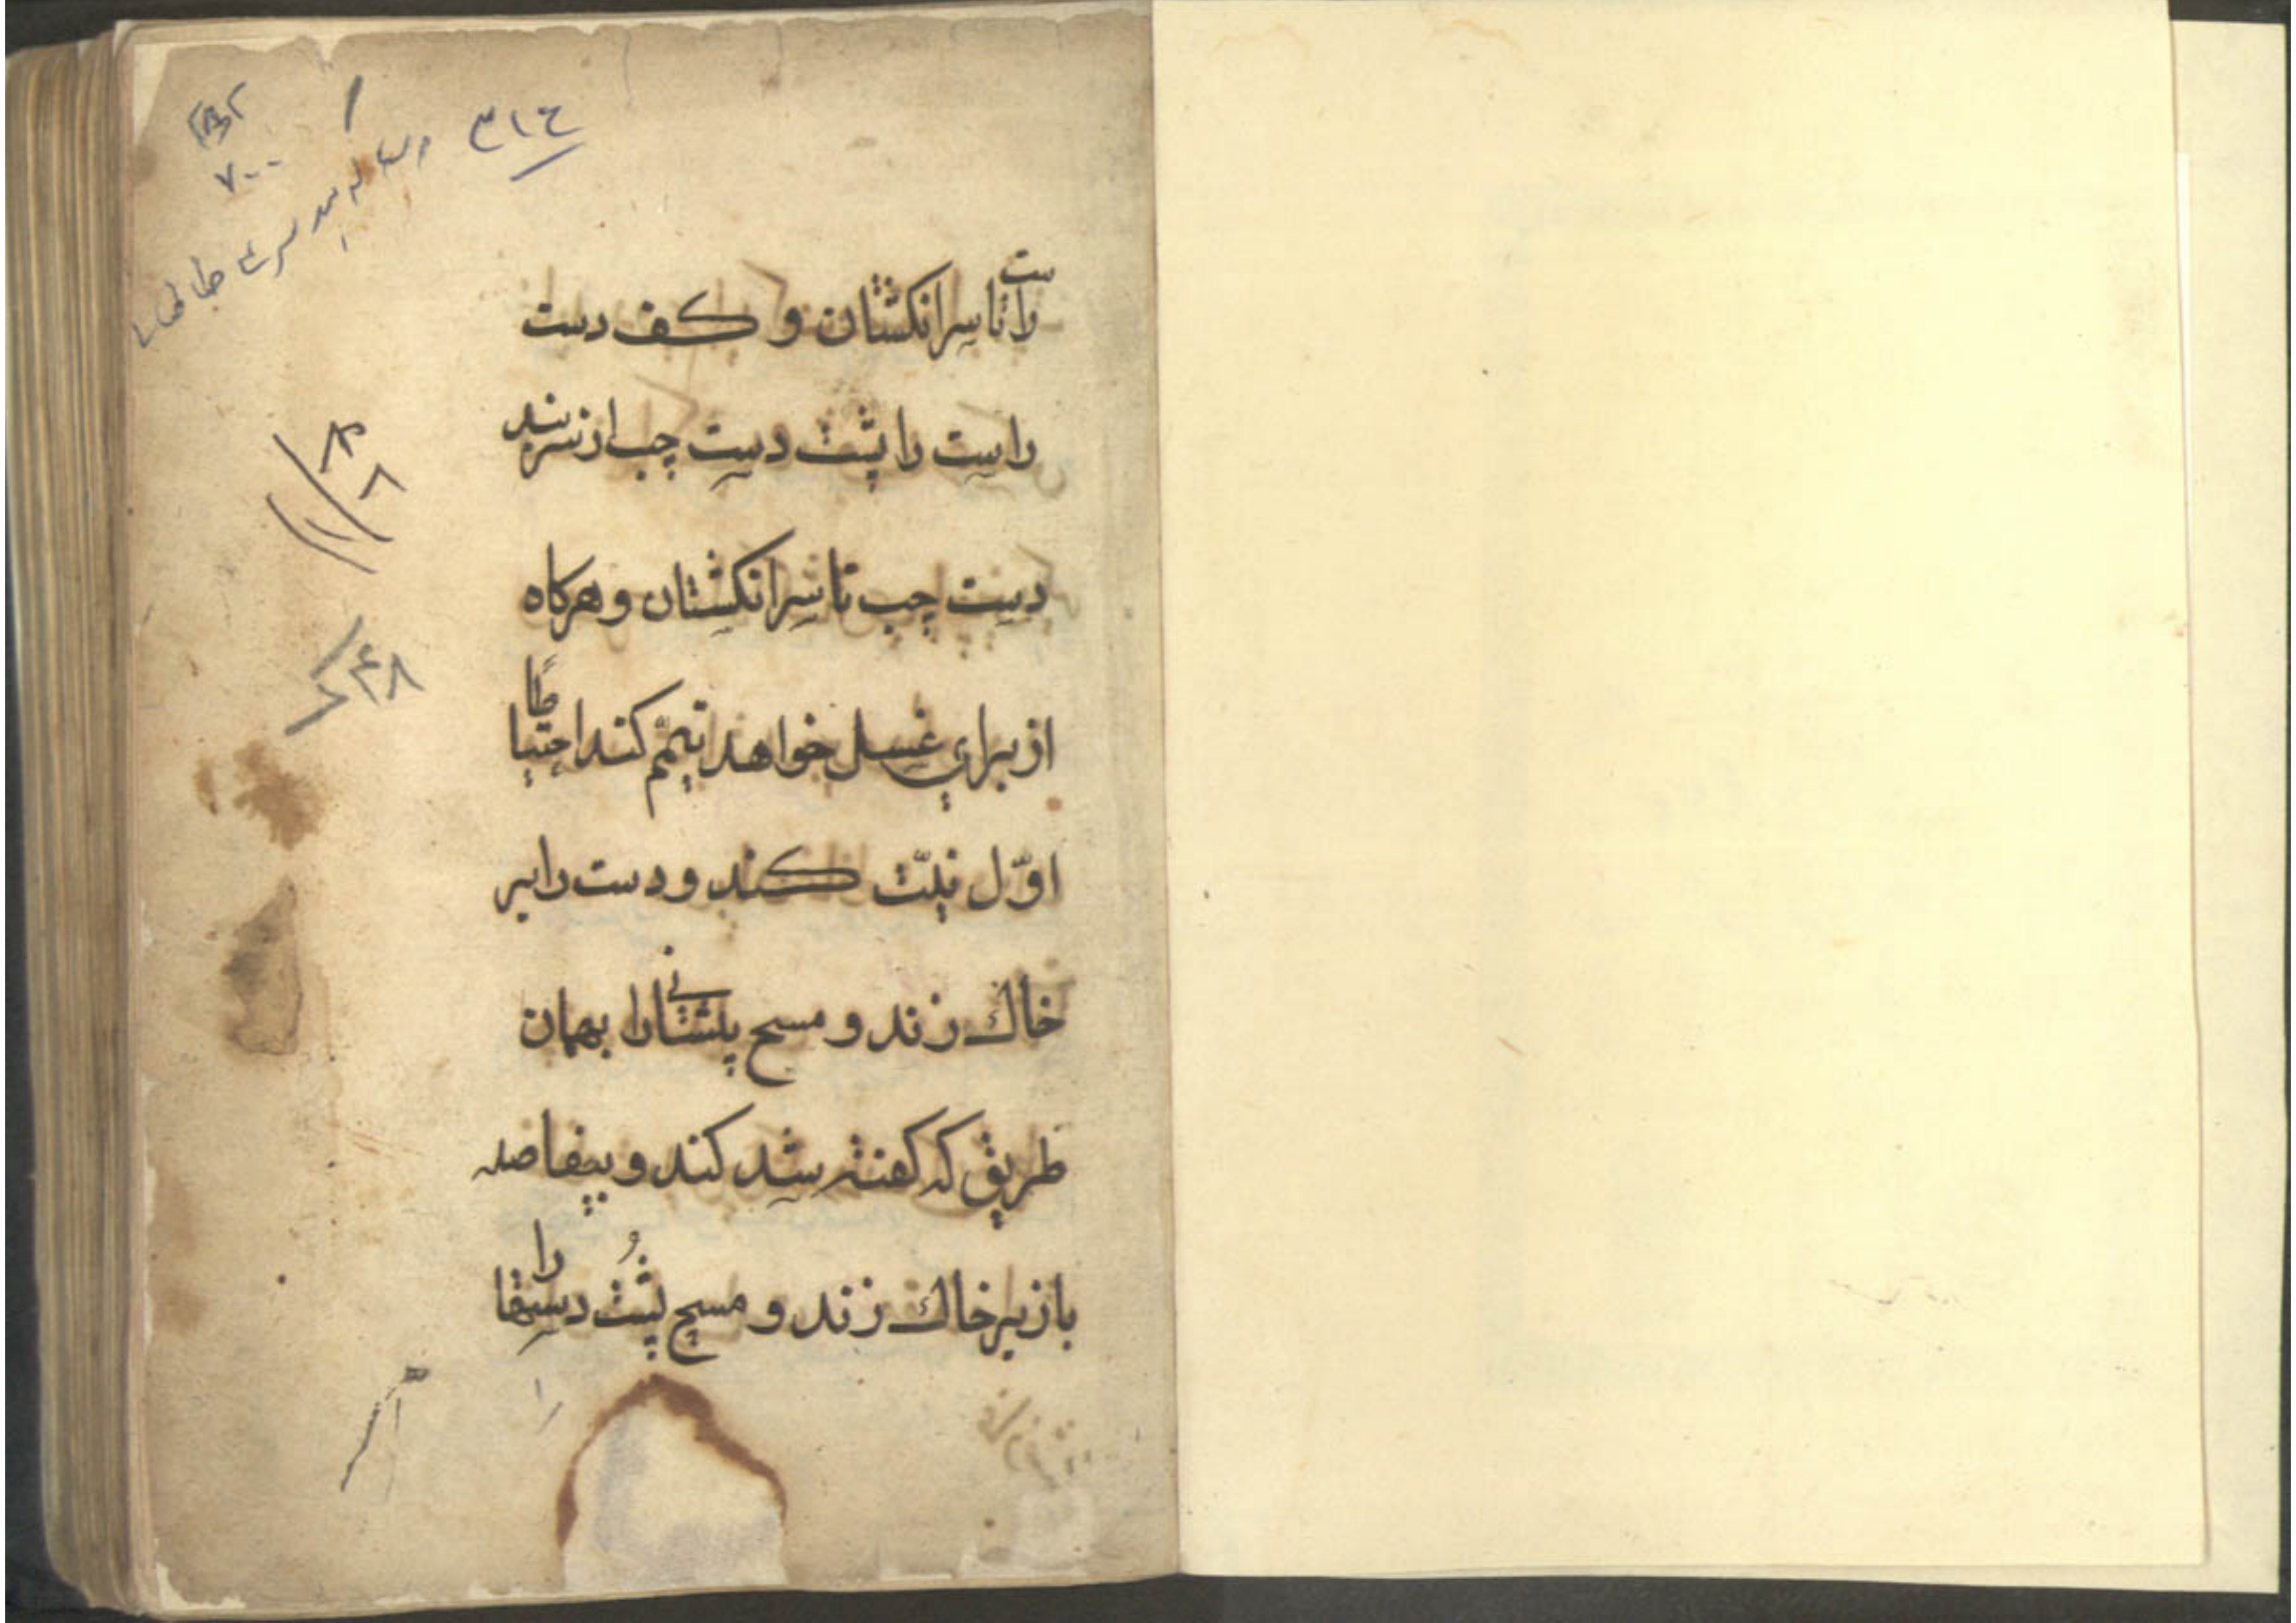 ۳۱۴
۷۰۰
راست تا سر انکشتان و کف دست
راست را پشت دست چب از سر بند
دست چب تا سر انکشتان و هرکاه
از برای غسل خواهد تیمّم کند احتیاطًا
اوّل نیّت کند و دست را بر
خاك زند و مسح پیشانی را بهمان
طریق که کفته شد کند و بیفاصله
باز بر خاك زند و مسح پشُت دستها را